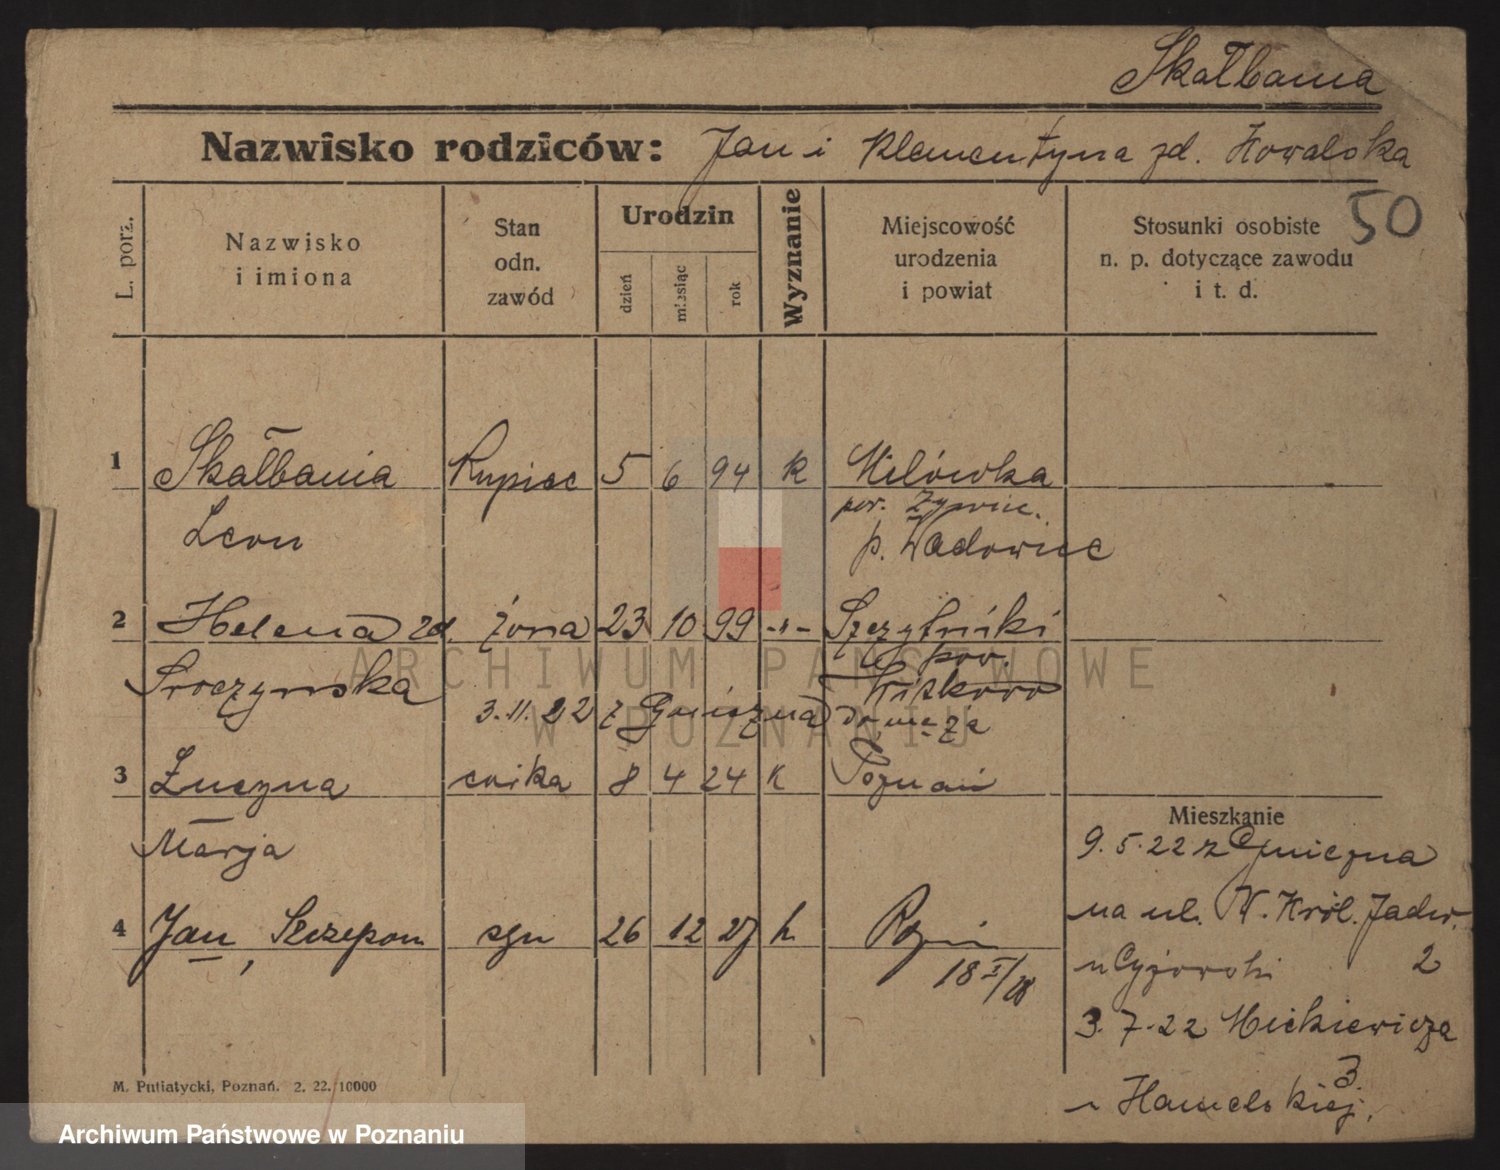 Skałbania
Nazwisko rodziców: Jan i Klementyna zd. Kowalska
50
L. porz.
Nazwisko
i imiona
Stan
odn.
zawód
Urodzin
dzień
miesiąc
rok
Wyznanie
Miejscowość
urodzenia
i powiat
Stosunki osobiste
n. p. dotyczące zawodu
i t. d.
1 Skałbania Kupiec 5 6 94 k Milówka
pow. Żywiec.
Leon p. Wadowice
2 Helena zd. żona 23 10 99 -"- Szczytniki
pow.
Sroczyńska Witkowo
3.11.22 z Gniezna
3 Łucyna córka 8 4 24 k Poznań
Marja
Mieszkanie
9.5.22 z Gniezna
na ul. W. Król. Jadw.
2
4 Jan, Szczepan syn 26 12 27 k
18 I/28
3.7.22 Mickiewicza
3.
M. Putiatycki, Poznań. 2. 22. 10000
ARCHIWUM PAŃSTWOWE
W POZNANIU
Archiwum Państwowe w Poznaniu